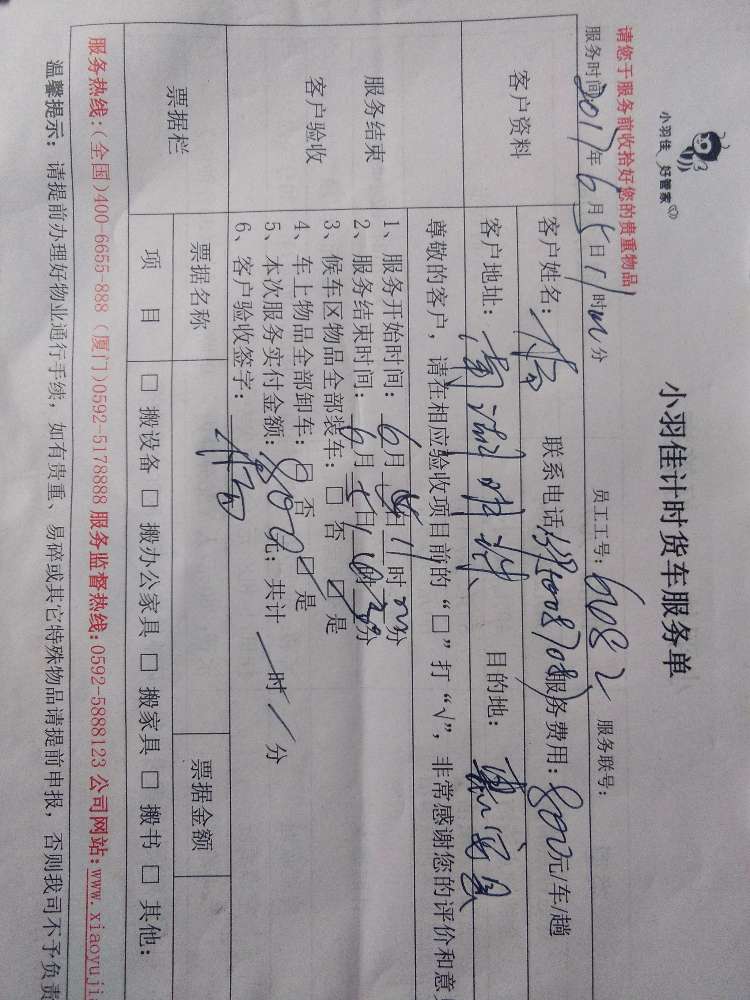 小羽佳 好管家
小羽佳计时货车服务单
请您于服务前收拾好您的贵重物品
服务时间 2017年6月5日11时 分 员工工号: 6082 服务联号:
客户资料
客户姓名: 联系电话 服务费用: 800元/车/趟
客户地址: 目的地:
服务结束
客户验收
尊敬的客户, 请在相应验收项目前的“□”打“√”, 非常感谢您的评价和意
1、服务开始时间: 6月 日 11时 分
2、服务结束时间: 6月 日 时 分
3、候车区物品全部装车: □ 否 ☑ 是
4、车上物品全部卸车: □ 否 ☑ 是
5、本次服务实付金额: 800元; 共计 / 时 / 分
6、客户验收签字:
票据栏
票据名称 票据金额
项 目 □ 搬设备 □ 搬办公家具 □ 搬家具 □ 搬书 □ 其他:
服务热线:(全国)400-6655-888 (厦门)0592-5178888 服务监督热线:0592-5888123 公司网站:www.xiaoyuji
温馨提示: 请提前办理好物业通行手续, 如有贵重、易碎或其它特殊物品请提前申报, 否则我司不予负责